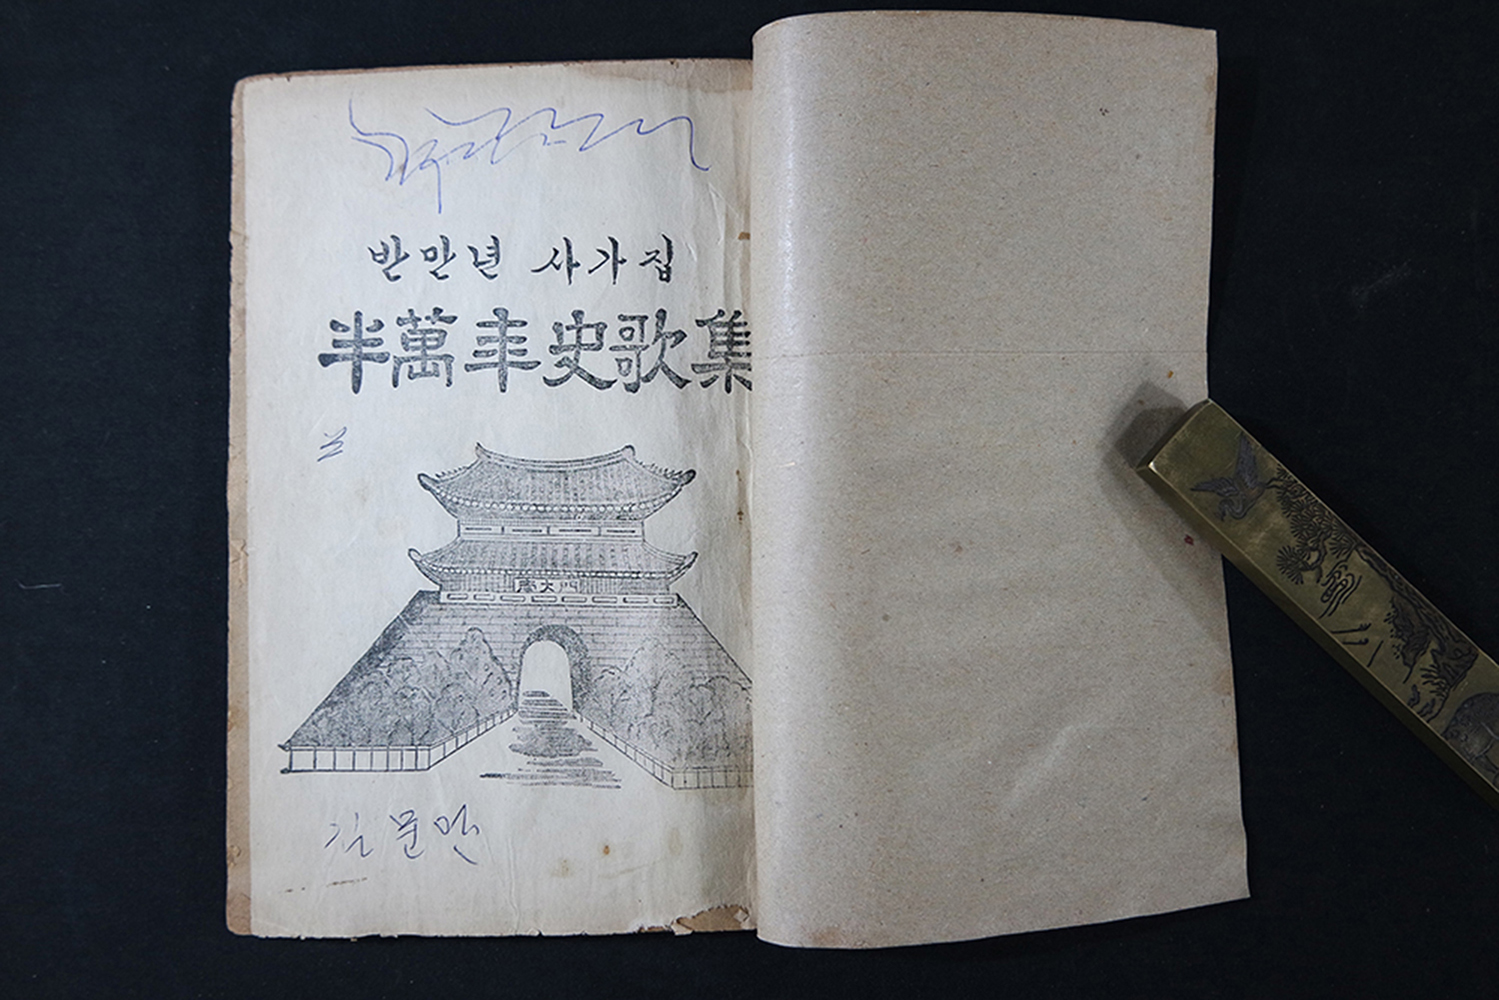 반만년 사가집
半萬年史歌集
門大南
김문만